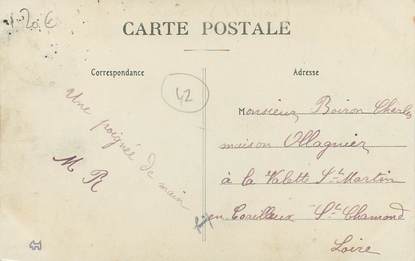 CARTE POSTALE
Correspondance
Adresse
42
Une poignée de main
M R
Monsieur Boiron Charles
maison Ollagnier
à la Valette St Martin
en Coailleux St Chamond
Loire